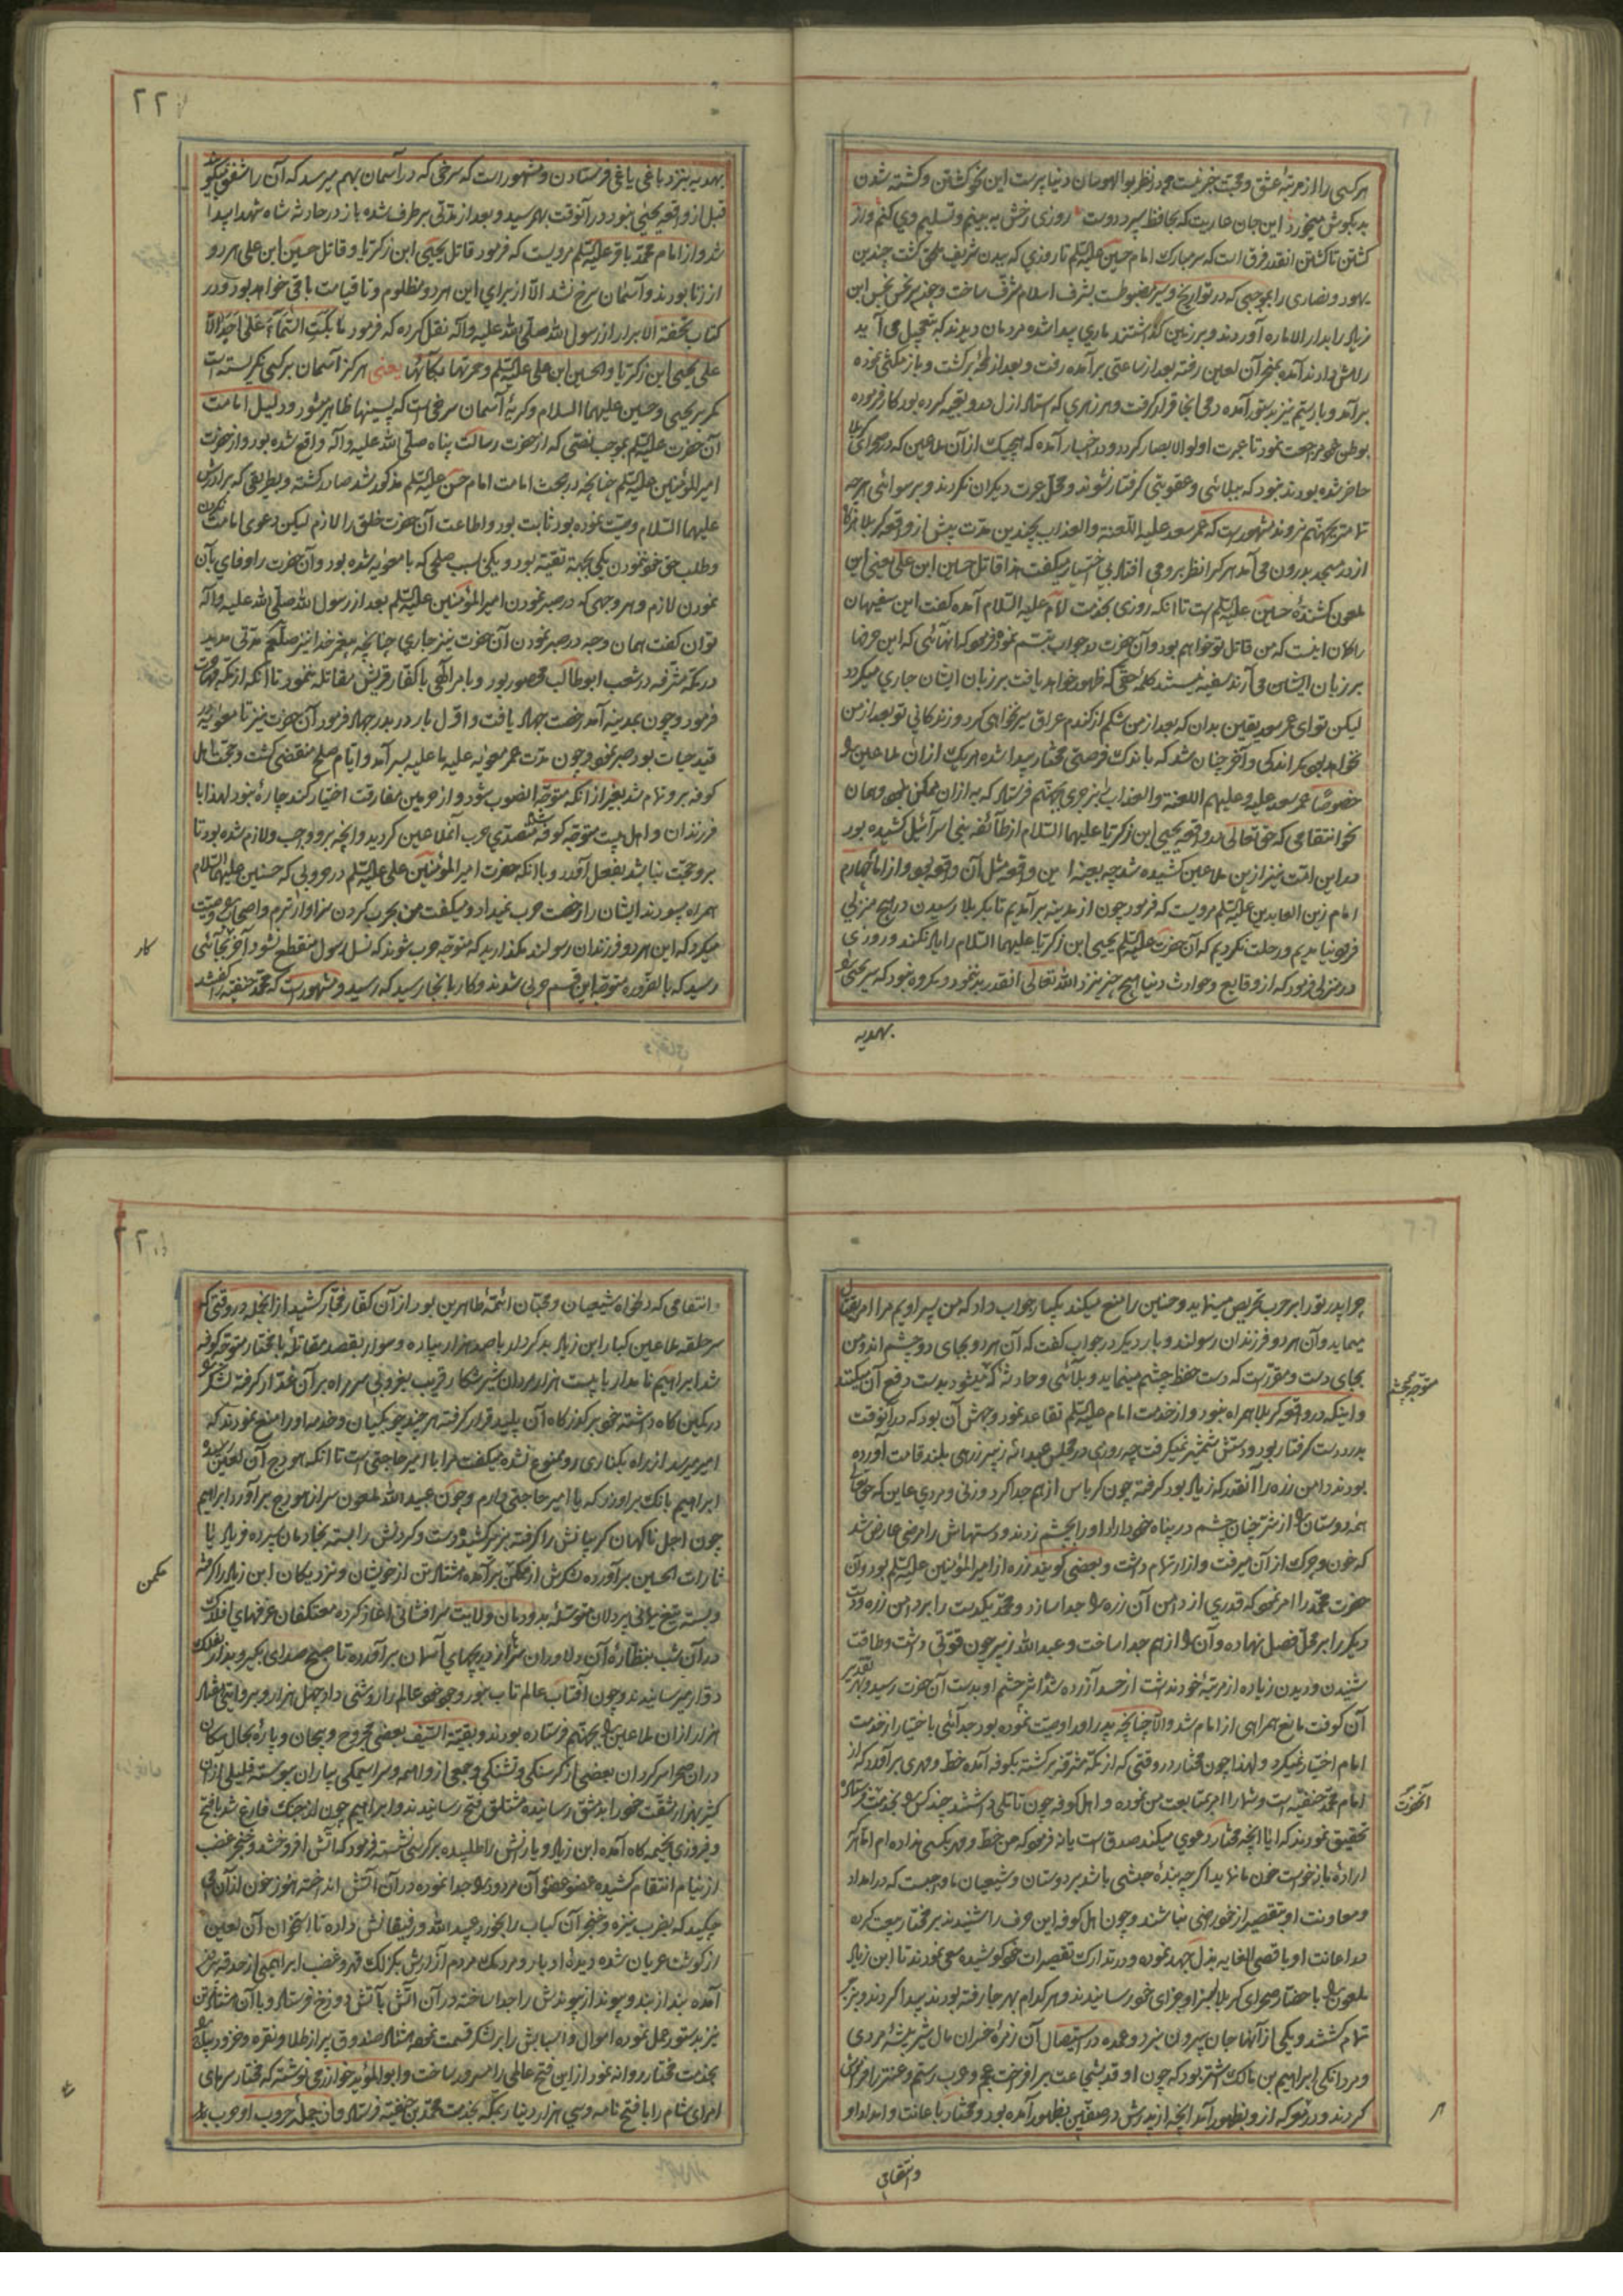 هر کسی را از مرتبهٔ عشق و محبت خبر نیست و در نظر بوالهوسان دنیا پرست این نحو کشتن و کشته شدن
این جان عاریت که بحافظ سپرد دوست روزی رخش به بینم و تسلیم وی کنم و از
کشتن تا کشتن انقدر فرق است که سر مبارک امام حسین علیه السلم تا روزی که ببدن شریف ملحق کشت چندین
یهود و نصاری را بموجبی که در تواریخ و سیر مضبوطست بشرف اسلام مشرف ساخت و چون سر نحس نجس ابن
زیاد را بدار الاماره آوردند و بر زمین گذاشتند ماری پیدا شده مردمان دیدند که بتعجیل می آید
راهش دادند آمده بمنخر آن لعین رفته بعد از ساعتی برآمده رفت و بعد از لحظه برکشت و باز مکثی نموده
حاضر شده بودند نبود که ببلائی و عقوبتی کرفتار نشوند و محل عبرت دیکران نکردند و برسوائی هرچه
تمامتر بجهنم نروند مشهور است که عمر سعد علیه اللعنة والعذاب بچندین مدت پیش از واقعه کربلا هرکاه
از در مسجد بدرون می آمد هر کرا نظر برو می افتاد بی اختیار میکفت هذا قاتل حسین ابن علی یعنی این
ملعون کشندهٔ حسین علیه السلم است تا انکه روزی بخدمت امام علیه السلام آمده کفت این سفیهان
را کمان اینست که من قاتل تو خواهم بود وآن حضرت در جواب تبسم نموده فرمود که انهائی که این حرف را
بر زبان ایشان می آرند سفیه نیستند کلمهٔ حقی که ظهور خواهد یافت بر زبان ایشان جاری میکردد
لیکن تو ای عمر سعد یقین بدان که بعد از من شکم از کندم عراق سیر نخواهی کرد و زندکانی تو بعد از من
نخواهد بود مکر اندکی و آخر چنان شد که باندک فرصتی مختار پیدا شده هر یک از ان ملاعین را
خصوصًا عمر سعد علیه و علیهم اللعنة والعذاب بزجری بجهنم فرستاد که به از ان ممکن نبود و همان
نحو انتقامی که حق تعالی در واقعه یحیی ابن زکریا علیهما السلام از طائفه بنی اسرائیل کشیده بود
در این امت نیز ازین ملاعین کشیده شد چه بعینه این واقعه مثل آن واقعه بود و از امام چهارم
امام زین العابدین علیه السلم مرویست که فرمود چون از مدینه برآمدیم تا بکربلا رسیدن در هیچ منزلی
فرو نیامدیم و رحلت نکردیم که آن حضرت علیه السلم یحیی ابن زکریا علیهما السلام را یاد نکند و روزی
در منزلی فرمود که از وقایع و حوادث دنیا هیچ چیز نزد الله تعالی انقدر بد ننمود و مکروه نبود که سر یحیی را
بهدیه
۲۲
بهدیه بنزد باغی یاغی فرستادن و مشهور است که سرخی که در آسمان بهم میرسد که آن را شفق میکویند
قبل از واقعه یحیی نبود در آنوقت بهم رسید و بعد از مدتی بر طرف شده باز در حادثه شاه شهدا پیدا
شد و از امام محمد باقر علیه السلم مرویست که فرمود قاتل یحیی ابن زکریا و قاتل حسین ابن علی هر دو
از زنا بودند و آسمان سرخ نشد الا از برای این هر دو مظلوم و تا قیامت باقی خواهد بود و در
کتاب تحفة الابرار از رسول الله صلی الله علیه و آله نقل کرده که فرمود ما بکت السماء علی احد الا
علی یحیی ابن زکریا والحسین ابن علی علیه السلم و حمرتها بکائها یعنی هرکز آسمان بر کسی نکریسته است
مکر بر یحیی و حسین علیهما السلام و کریهٔ آسمان سرخی است که پسینها ظاهر میشود و دلیل امامت
آن حضرت علیه السلم بموجب نصی که از حضرت رسالت پناه صلی الله علیه و آله واقع شده بود و از حضرت
امیر المؤمنین علیه السلم چنانچه در بحث امامت امام حسن علیه السلم مذکور شد صادر کشته و بطریقی که برادرش
علیهما السلام وصیت نموده بود ثابت بود و اطاعت آن حضرت خلق را لازم لیکن دعوی امامت نکردن
و طلب حق خود ننمودن یکی بجهة تقیه بود و یکی بسبب صلحی که با معویه شده بود و آن حضرت را وفای بآن
نمودن لازم و هر وجهی که در صبر نمودن امیر المؤمنین علیه السلم بعد از رسول الله صلی الله علیه و آله
توان کفت همان وجه در صبر نمودن آن حضرت نیز جاری چنانچه پیغمبر خدا نیز صلعم مدتی مدید
در مکهٔ مشرفه در شعب ابو طالب محصور بود و بامر الهی با کفار قریش مقاتله ننمود تا آنکه از مکه مهاجرت
فرمود و چون بمدینه آمد رخصت جهاد یافت و اول بار در بدر جهاد فرمود آن حضرت نیز تا معویه در
قید حیات بود صبر نمود و چون مدت عمر معویه علیه ما علیه بسر آمد و ایام صلح منقضی کشت و حجت اهل
کوفه برو تمام شد بغیر از انکه متوجه انصوب شود و از حرمین مفارقت اختیار کند چارهٔ نبود لهذا با
فرزندان و اهل بیت متوجه کوفه شد متصدی حرب آنملاعین کردید و انچه برو واجب و لازم شده بود تا
برو حجت نباشد بفعل آورد و با آنکه حضرت امیر المؤمنین علی علیه السلم در حروبی که حسنین علیهما السلام
همراه میبودند ایشان را رخصت حرب نمیداد و میکفت من بحرب کردن سزاوارترم و اصحاب را وصیت
میکرد که این هر دو فرزندان رسولند مکذارید که متوجه حرب شوند که نسل رسول منقطع نشود آخر بجائی
رسید که بالضروره متوجه این قسم حربی شدند و کار بانجا رسید که رسید و مشهور است که محمد حنفیه را کفتند
کار
چرا پدر تو در هر حرب تحریص مینماید و حسنین را منع میکند یکبار جواب داد که من پسر اویم مرا امر بقتال
میماید و آن هر دو فرزندان رسولند و بار دیکر در جواب کفت که آن هر دو بجای دو چشم اند و من
بجای دست و مقرر است که دست حفظ چشم مینماید و بلائی و حادثهٔ که میشود بدست دفع آن میکنند
متوجه چشم
و اینکه در واقعه کربلا همراه نبود و از خدمت امام علیه السلم تقاعد نمود وجهش آن بود که در آنوقت
بدرد دست کرفتار بود و دستش شمشیر نمیکرفت چه روزی در مجلس عبد الله زبیر زرهی بلند قامت آورده
بودند دامن زره را آنقدر که زیاد بود کرفته چون کرباس از هم جدا کرد
که خون و چرک از آن میرفت و ازار تمام داشت و بعضی کویند زره از امیر المؤمنین علیه السلم بود و آن
حضرت محمد را امر نمود که قدری از دامن آن زره را جدا سازد و محمد یکدست را بر دامن زره و دست
دیکر را بر محل فصل نهاده و آن را از هم جدا ساخت و عبد الله زبیر چون قوتی داشت و طاقت
شنیدن و دیدن زیاده از مرتبهٔ خود نداشت از حسد آزرده شد اثر چشم او بدست آن حضرت رسید و بهر تقدیر
آن کوفت مانع همراهی از امام شد و الا چنانچه پدر او را وصیت نموده بود جدائی باختیار از خدمت
امام اختیار نمیکرد و لهذا چون مختار در وقتی که از مکه مشرفه برکشته بکوفه آمده خط و مهری برآورد که از
امام محمد حنفیه است و شما را امر بمتابعت من نموده و اهل کوفه چون تاملی داشتند چند کس را بخدمت فرستاده
آنحضرت
تحقیق نمودند که ایا انچه مختار دعوی میکند صدق است یا نه فرمود که من خط و مهر بکسی نداده ام اما هر که
ارادهٔ باز خواست خون ما نماید اگرچه بندهٔ حبشی باشد بر دوستان و شیعیان ما واجبست که در امداد
و معاونت او بتقصیر از خود راضی نباشند و چون اهل کوفه این حرف را شنیدند بر مختار بیعت کرده
در اعانت او باقصی الغایه بذل جهد نموده و در تدارک تقصیرات خود کوشیده سعی نمودند تا ابن زیاد
ملعون را با حضار صحرای کربلا بجزا و سزای خود رسانیدند و هر کدام بهر جا رفته بودند پیدا کردند و بزجر
تمام کشتند و یکی از آنها جان بیرون نبرد و عمده در استیصال آن زمرهٔ خسران مآل شیر بیشهٔ مردی
و مردانکی ابراهیم بن مالک اشتر بود که چون او قد بشجاعت برافراخت عجم و عرب رستم و عنتر را فراموش
کردند و در نبرد که از و بظهور آمد انچه از پدرش در صفین بظهور آمده بود و مختار باعانت و امداد او
وانتقامی
وانتقامی که دلخواه شیعیان و محبان ائمه طاهرین بود از آن کفار فجار کشید از انجمله در وقتی که
سر حلقه ملاعین کبار ابن زیاد بدکردار با صد هزار پیاده و سوار بقصد مقاتلهٔ با مختار متوجه کوفه
شد ابراهیم نامدار با بیست هزار مردان شیر شکار قریب بغروبی سر راه بر آن غدار کرفته لشکر را
در کمین کاه داشته خود بر کذرکاه آن پلید قرار کرفته هر چند چوبکیان و خدمه او را منع نمودند که
امیر میرسد از راه بکناری رو ممنوع نشده میکفت مرا با امیر حاجتی است تا آنکه هودج آن لعین رسیده
ابراهیم بانک براو زد که با امیر حاجتی دارم و چون عبید الله ملعون سر از هودج برآورد ابراهیم
چون اجل ناکهان کریبانش را کرفته بزیر کشید و دست و کردنش را بسته بخادمان سپرده فریاد یا
ثارات الحسین برآورده لشکرش از مکمن برآمده هشتاد تن از خویشان و نزدیکان ابن زیاد را کرفته
مکمن
در آن شب بنظارهٔ آن دلاوران سر از دریچهای آسمان برآورده تا صبح صدای بکیر و بدار بفلک
دوار میرسانیدند و چون آفتاب عالم تاب بنور وجود خود عالم را روشنی داد چهل هزار و بروایتی هفتاد
هزار از ان ملاعین را بجهنم فرستاده بودند و بقیة السیف بعضی مجروح و بیجان و پارهٔ بحال سکان
در ان صحرا سرکردان بعضی از کرسنکی و تشنکی و جمعی از واهمه و سراسیمکی بیاران پیوسته قلیلی از ان
کثیر بهزار مشقت خود را بدمشق رسانیده مشتلق فتح رسانیدند و ابراهیم چون از جنک فارغ شد با فتح
و فیروزی بخیمه کاه آمده ابن زیاد و یارانش را طلبیده بر کرسی نشسته فرمود که اتش افروختند و خنجر غضب
از نیام انتقام کشیده عضو عضو آن مردود را جدا نموده در آن آتش انداخته هنوز خون از آن می
چکید که بضرب نیزه و خنجر آن کباب را بخورد عبید الله و رفیقانش داده تا استخوان آن لعین
از کوشت عریان شده دیدهٔ ادبار و مردمک مردم آزارش بکزلک قهر و غضب ابراهیمی از حدقه بدر
آمده بند از بند و پیوند از پیوندش را جدا ساخته در آن آتش بآتش دوزخ فرستاد و با آن هشتاد تن
نیز بدستور عمل نموده اموال و اسبابش را بر لشکر قسمت نموده هشتاد صندوق پر از طلا و نقره و خز و دیبا را
بخدمت مختار روانه نمود از این فتح عالمی را مسرور ساخت و ابو المؤید خوارزمی نوشته که مختار سرهای
امرای شام را با فتح نامه و سی هزار دینار بمکه بخدمت محمد بن حنفیه فرستاد و از جملهٔ حروب او حرب